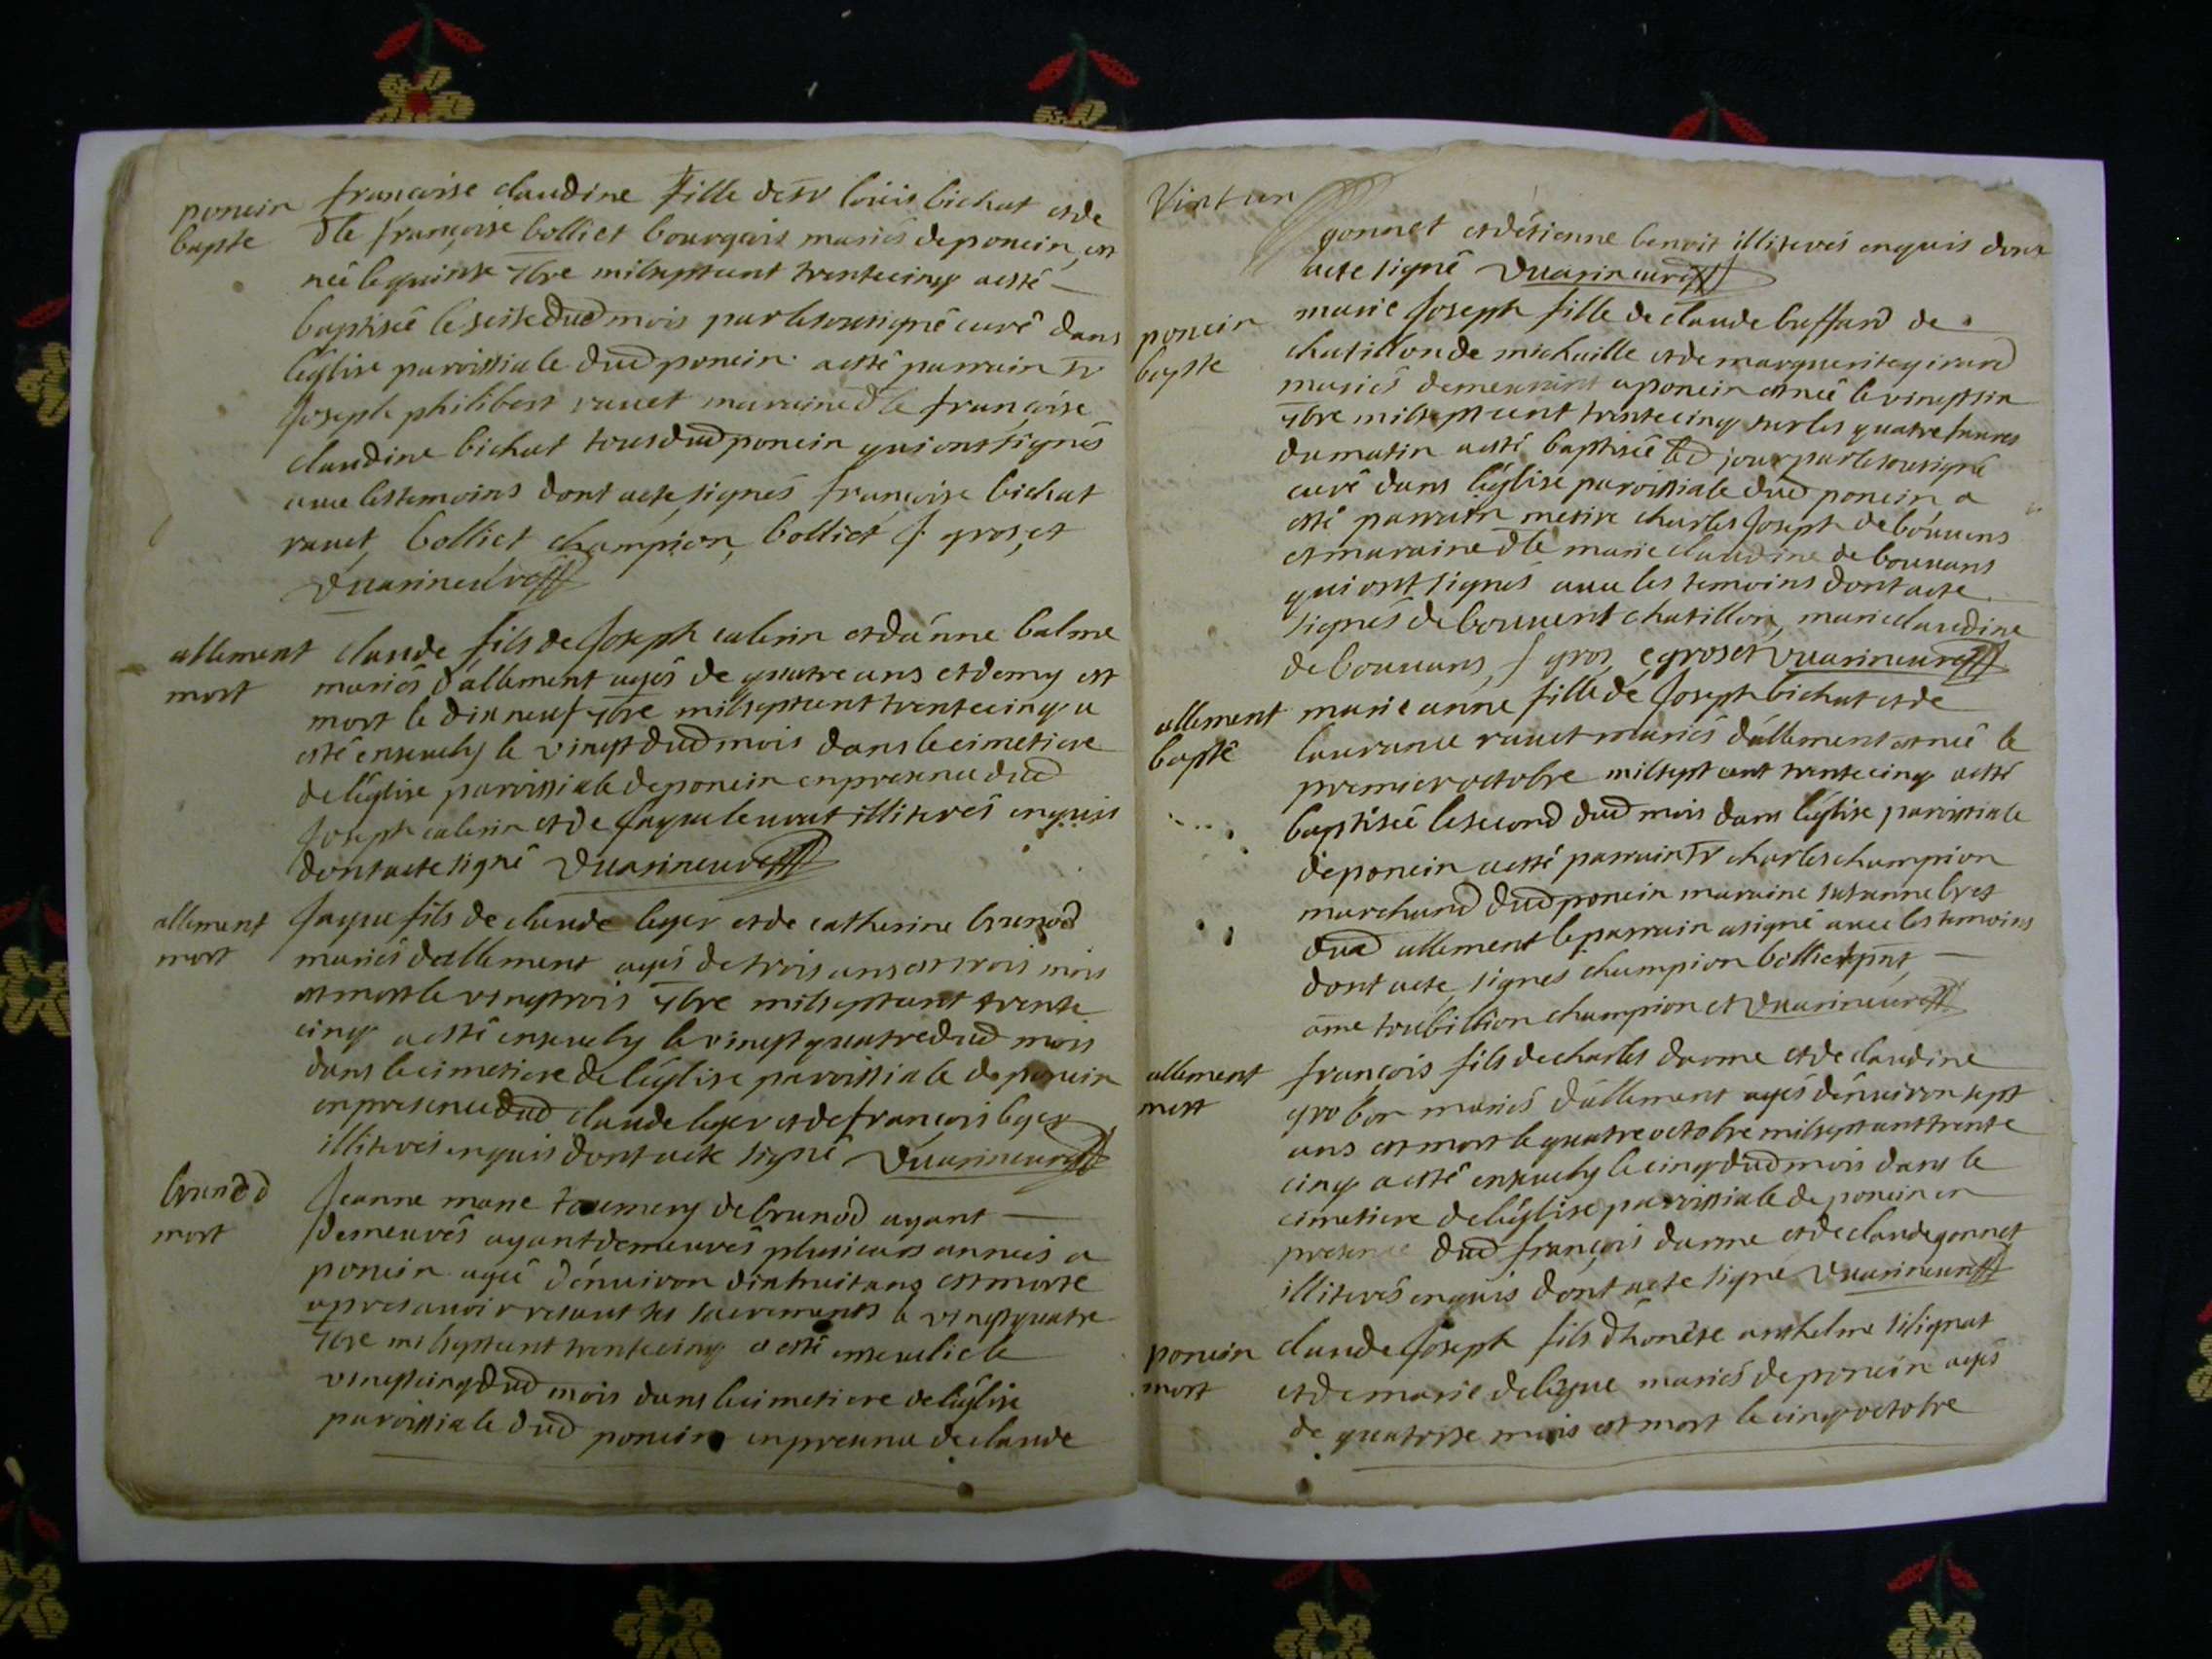 poncin
bapste
françoise claudine fille de sr loüis bichat et de
dlle françoise bolliet bourgeois mariés de poncin, est
née le quinse 7bre mil sept cent trente cinq a esté
baptisée le seise dud mois par le sousigné curé dans
l'église paroissiale dud poncin a esté parrain sr
joseph philibert rauet maraine dlle françoise
claudine bichat tous dud poncin qui ont signés
auec les temoins dont acte, signés françoise bichat
rauet, bolliet champion, bolliet J. gros, et
Duarin curé
allement
mort
claude fils de joseph calerin et d'anne balme
mariés d'allement agés de quatre ans et demy est
mort le dix neuf 7bre mil sept cent trente cinq a
esté enseuely le vingt dud mois dans le cimetiere
de l'église paroissiale de poncin en presence dud
joseph calerin et de illiterés enquis
dont acte signé Duarin curé
allement
mort
jaque fils de claude leger et de catherine brunod
mariés d'allement agés de trois ans et trois mois
est mort le vingt trois 7bre mil sept cent trente
cinq a esté enseuely le vingt quatre dud mois
dans le cimetiere de l'église paroissiale de poncin
en presence dud claude leger et de françois leger
illiterés enquis dont acte signé Duarin curé
brunod
mort
jeanne marie de brunod ayant
demeurés ayant demeurés plusieurs années a
poncin agée d'enuiron dixhuit ans est morte
apres auoir reseut ses sacrements le vingt quatre
7bre mil sept cent trente cinq a esté enseuelie le
vingt cinq dud mois dans le cimetiere de l'église
paroissiale dud poncin en presence de claude
Vint un
gonnet et d'étienne benoit illiterés enquis dont
acte signé Duarin curé
poncin
bapste
marie joseph fille de claude buffard de
chatillon de michaille et de marguerite girard
mariés demeurants a poncin est née le vingt six
7bre mil sept cent trente cinq sur les quatre heures
du matin a esté baptisée led jour par le sousigné
curé dans l'église paroissiale dud poncin a
esté parrain messire charles joseph de bouuens
et maraine dlle marie claudine de bouuans
qui ont signés auec les temoins dont acte
signés de bouuent chatillon, marie claudine
de bouuans, J gros, e gros et Duarin curé
allement
bapste
marie anne fille de joseph bichat et de
laurance rauet mariés d'allement est née le
premier octobre mil sept cent trente cinq a esté
baptisée le second dud mois dans l'église paroissiale
de poncin a esté parrain sr charles champion
marchand dud poncin maraine susanne bret
dud allement le parrain a signé auec les temoins
dont acte, signes champion bolliet pnt,
ame toubillion champion et Duarin curé
allement
mort
françois fils de charles darme et de claudine
grobon mariés d'allement agés d'enuiron sept
ans est mort le quatre octobre mil sept cent trente
cinq a esté enseuely le cinq dud mois dans le
cimetiere de l'église paroissiale de poncin en
presence dud françois darme et de claude gonnet
illiterés enquis dont acte signé Duarin curé
poncin
mort
claude joseph fils d'honéte anthelme silignat
et de marie deligue mariés de poncin agés
de quatorse mois est mort le cinq octobre